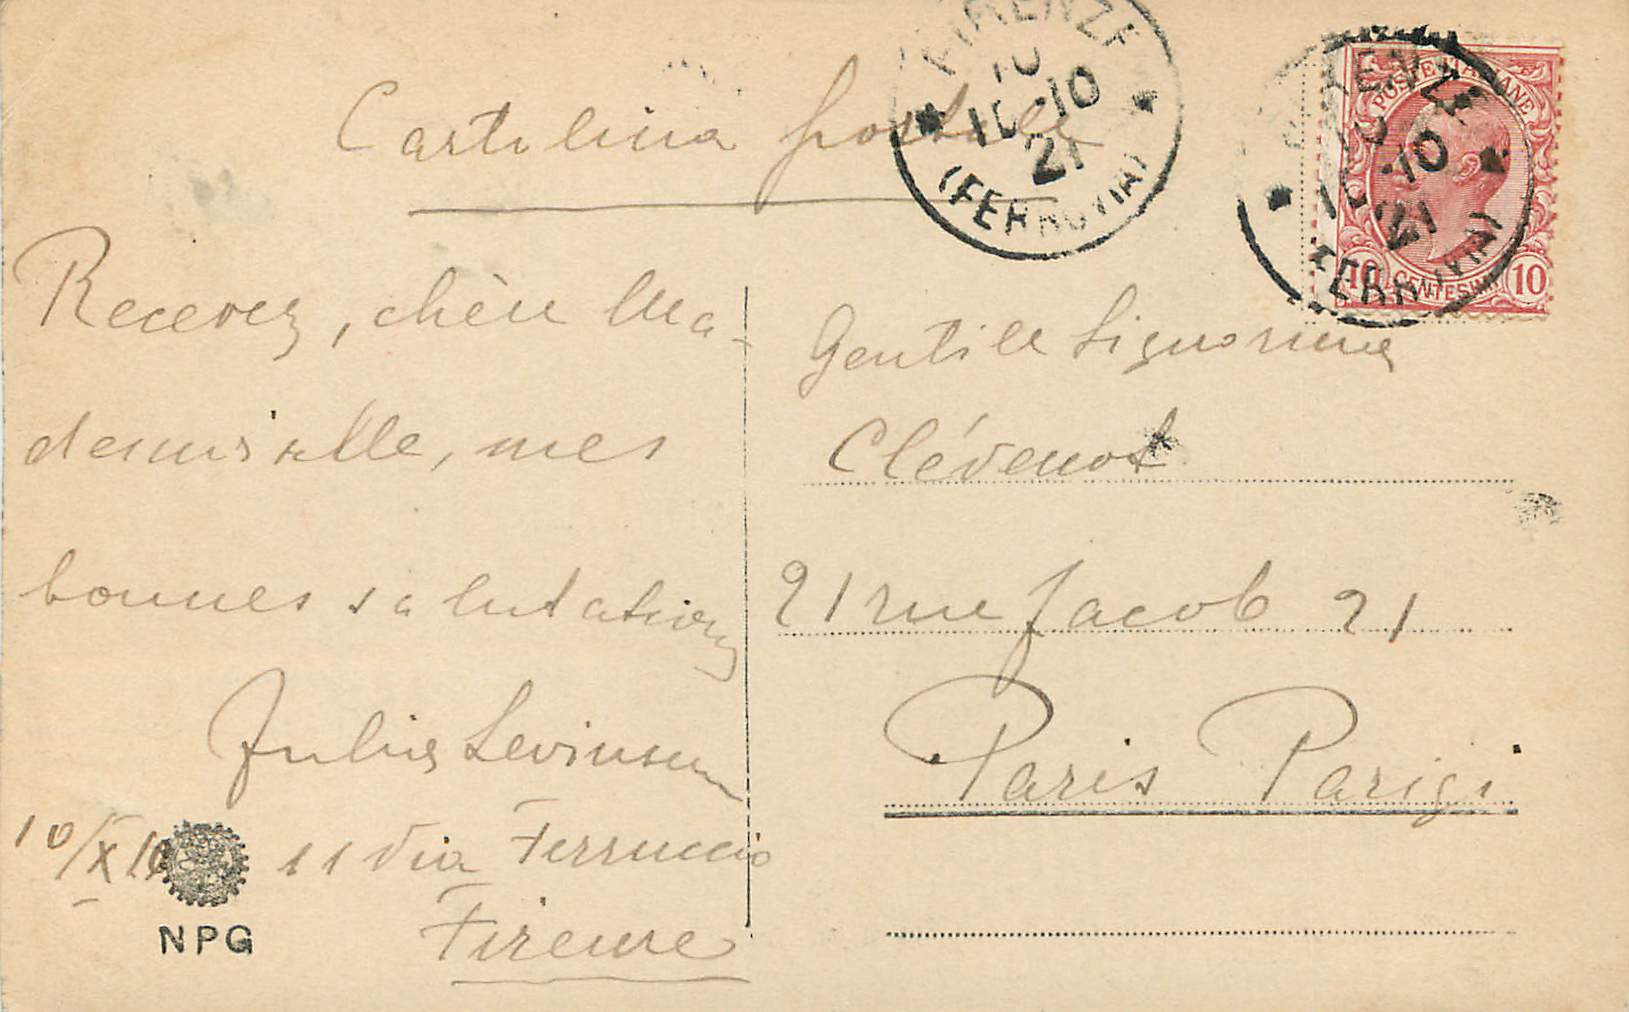 Cartolina postale
FIRENZE
10
10-10
21
(FERROVIA)
POSTE ITALIANE
10 CENTESIMI 10
FIRENZE
10
10
21
FERROVIA)
Recevez, chère Ma-
demoiselle, mes
bonnes salutations
Julius Levinson
10/X 10
11 Via Ferruccio
Firenze
NPG
Gentile Signorina
Clévenot
21 rue Jacob 21
Paris Parigi